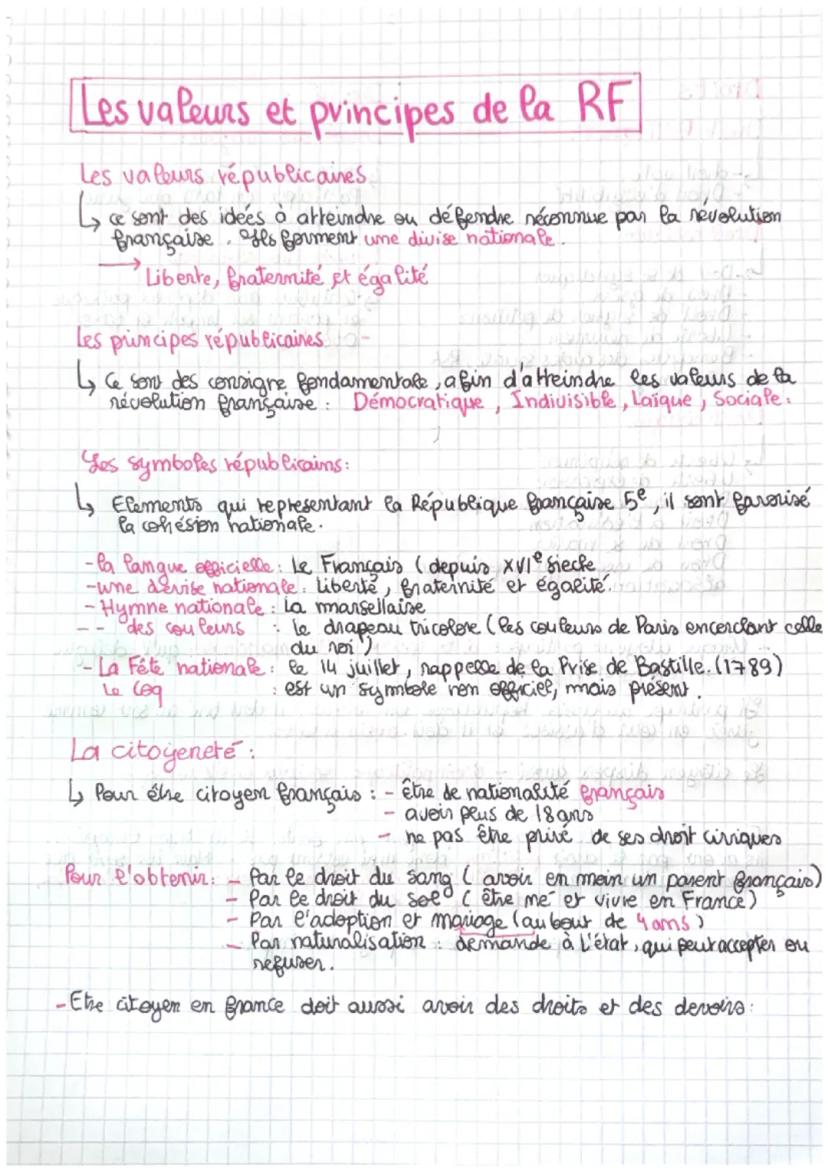 Les valeurs et principes de la RF
Les valeurs républicaines
↳ ce sont des ideés à atteindre ou défendre réconnue par la révolution
française. Ils forment une divise nationale.
→ Liberte, fraternité et égalité
Les principes républicaines -
↳ Ce sont des consigre fondamentale, afin d'atteindre les valeurs de la
révolution française : Démocratique, Indivisible, Laïque, Sociale.
Les symboles républicains:
↳ Elements qui representant la République française 5e, il sont favorisé
la cohésion nationale.
- la langue officielle : Le Français (depuis XVIe siecle
- une devise nationale : Liberté, fraternité et égalité.
- Hymne nationale : La marsellaise
-- des couleurs : le drapeau tricolore (les couleurs de Paris encerclant celle
du roi')
- La Fête nationale : le 14 juillet, rappelle de la Prise de Bastille. (1789)
Le Coq : est un symbole non officiel, mais présent.
La citoyeneté :
↳ Pour être citoyen français : - être de nationalité français
- avoir plus de 18 ans
- ne pas être privé de ses droit civiques
Pour l'obtenir : - Par le droit du sang (avoir en moin un parent français)
- Par le droit du sol (être né et vivre en France)
- Par l'adoption et mariage (au bout de 4 ans)
- Par naturalisation : demande à l'état, qui peut accepter ou
refuser.
- Etre citoyen en france doit aussi avoir des droits et des devoirs :